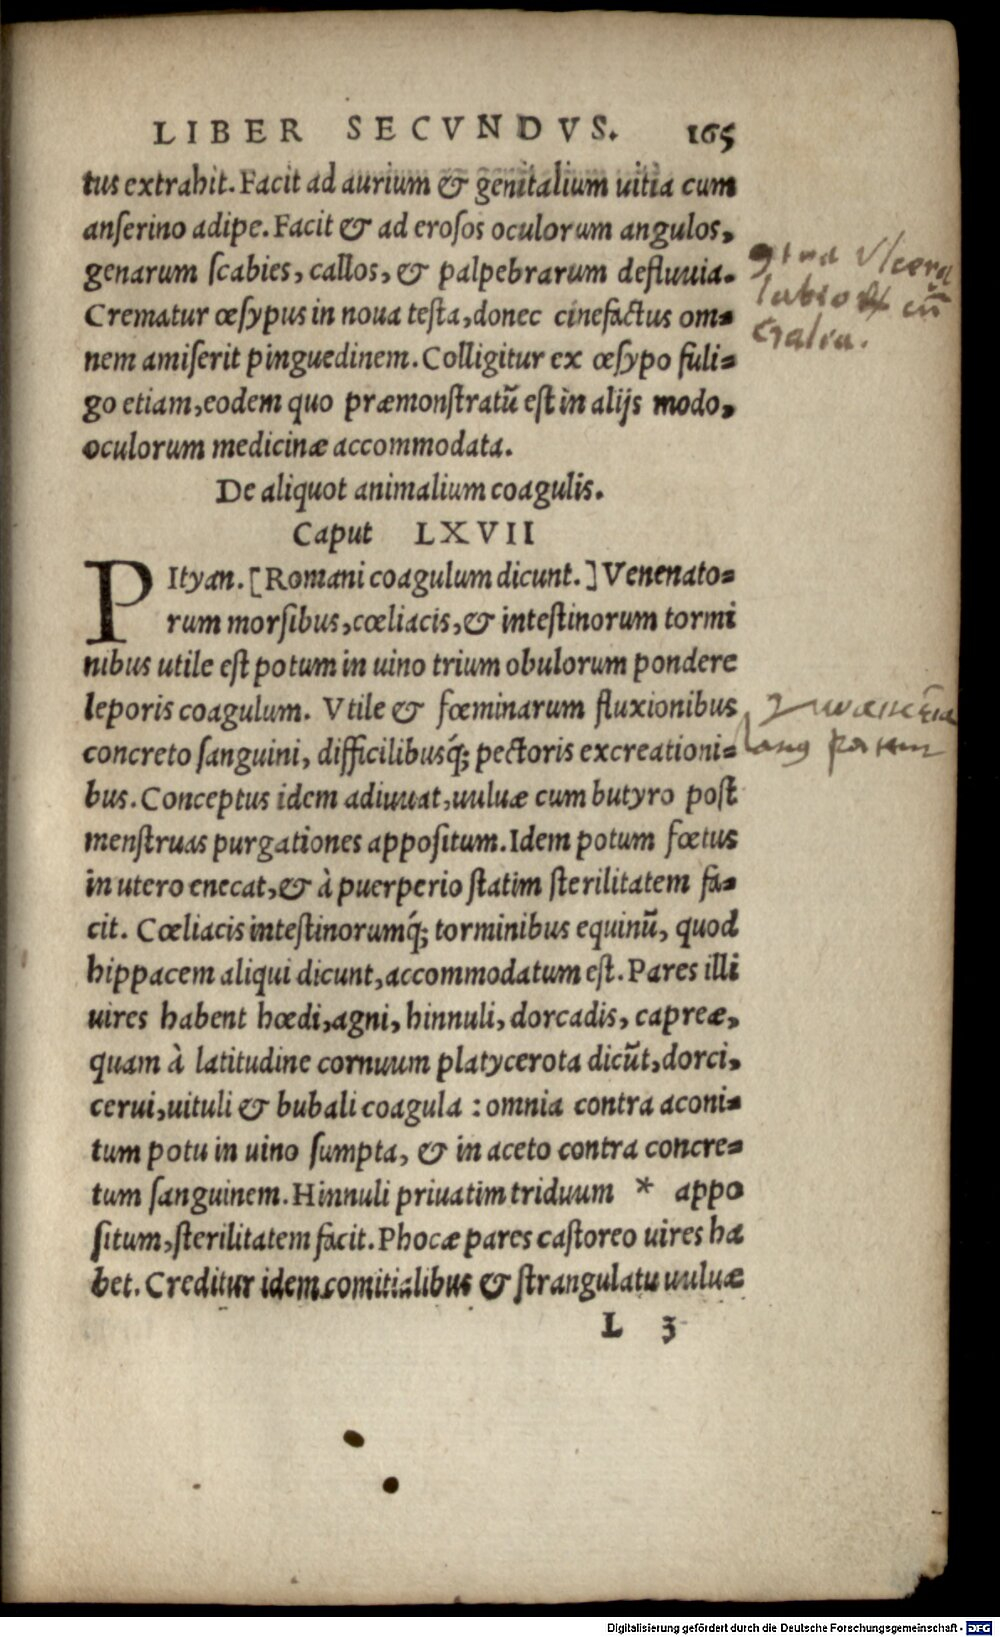 LIBER SECVNDVS. 165
tus extrahit. Facit ad aurium & genitalium uitia cum
anserino adipe. Facit & ad erosos oculorum angulos,
genarum scabies, callos, & palpebrarum defluuia.
Crematur œsypus in noua testa, donec cinefactus om=
nem amiserit pinguedinem. Colligitur ex œsypo fuli=
go etiam, eodem quo præmonstratũ est in alijs modo,
oculorum medicinæ accommodata.
De aliquot animalium coagulis.
Caput LXVII
PItyan. [Romani coagulum dicunt.] Venenato=
rum morsibus, cœliacis, & intestinorum tormi
nibus utile est potum in uino trium obulorum pondere
leporis coagulum. Vtile & fœminarum fluxionibus
concreto sanguini, difficilibusq́; pectoris excreationi=
bus. Conceptus idem adiuuat, uuluæ cum butyro post
menstruas purgationes appositum. Idem potum fœtus
in utero enecat, & à puerperio statim sterilitatem fa=
cit. Cœliacis intestinorumq́; torminibus equinũ, quod
hippacem aliqui dicunt, accommodatum est. Pares illi
uires habent hœdi, agni, hinnuli, dorcadis, capreæ,
quam à latitudine cornuum platycerota dicũt, dorci,
cerui, uituli & bubali coagula : omnia contra aconi=
tum potu in uino sumpta, & in aceto contra concre=
tum sanguinem. Hinnuli priuatim triduum * appo
situm, sterilitatem facit. Phocæ pares castoreo uires ha
bet. Creditur idem comitialibus & strangulatu uuluæ
L 3
Vlcera
cũ
Digitalisierung gefördert durch die Deutsche Forschungsgemeinschaft - DFG